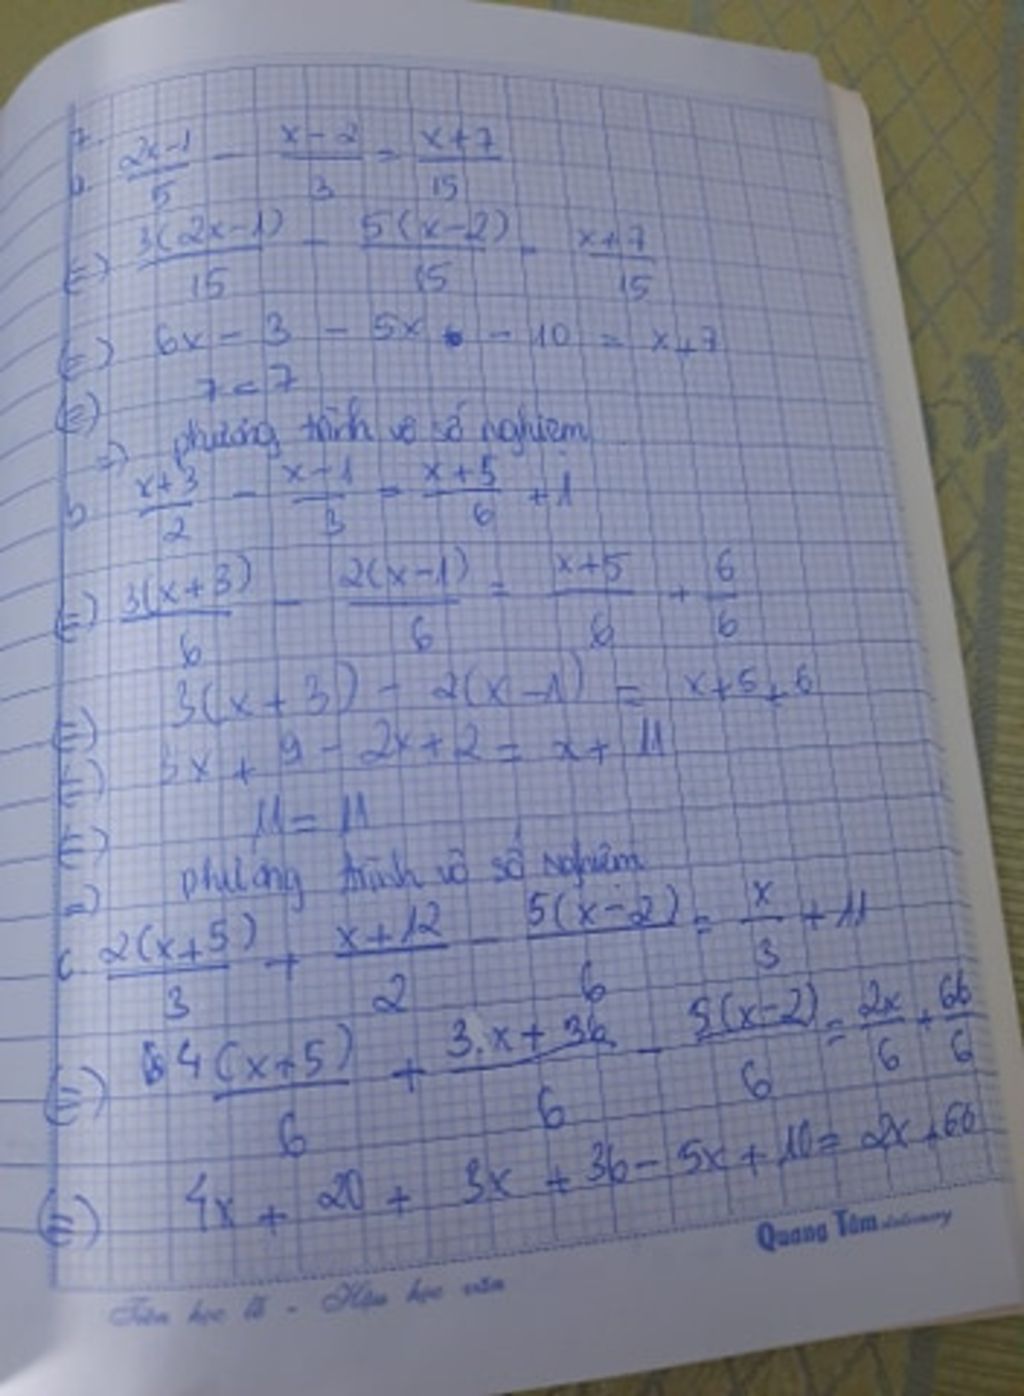 7.
a. (2x-1)/5 - (x-2)/3 = (x+7)/15
(=) 3(2x-1)/15 - 5(x-2)/15 = (x+7)/15
(=) 6x - 3 - 5x - 10 = x+7
(=) 7 = 7
=) phương trình vô số nghiệm
b (x+3)/2 - (x-1)/3 = (x+5)/6 + 1
(=) 3(x+3)/6 - 2(x-1)/6 = (x+5)/6 + 6/6
(=) 3(x+3) - 2(x-1) = x+5+6
(=) 3x + 9 - 2x + 2 = x + 11
(=) 11 = 11
=) phương trình vô số nghiệm
c 2(x+5)/3 + (x+12)/2 - 5(x-2)/6 = x/3 + 11
(=) 4(x+5)/6 + (3.x+36)/6 - 5(x-2)/6 = 2x/6 + 66/6
(=) 4x + 20 + 3x + 36 - 5x + 10 = 2x + 66
Quang Tâm stationery
Tiên học lễ - Hậu học văn